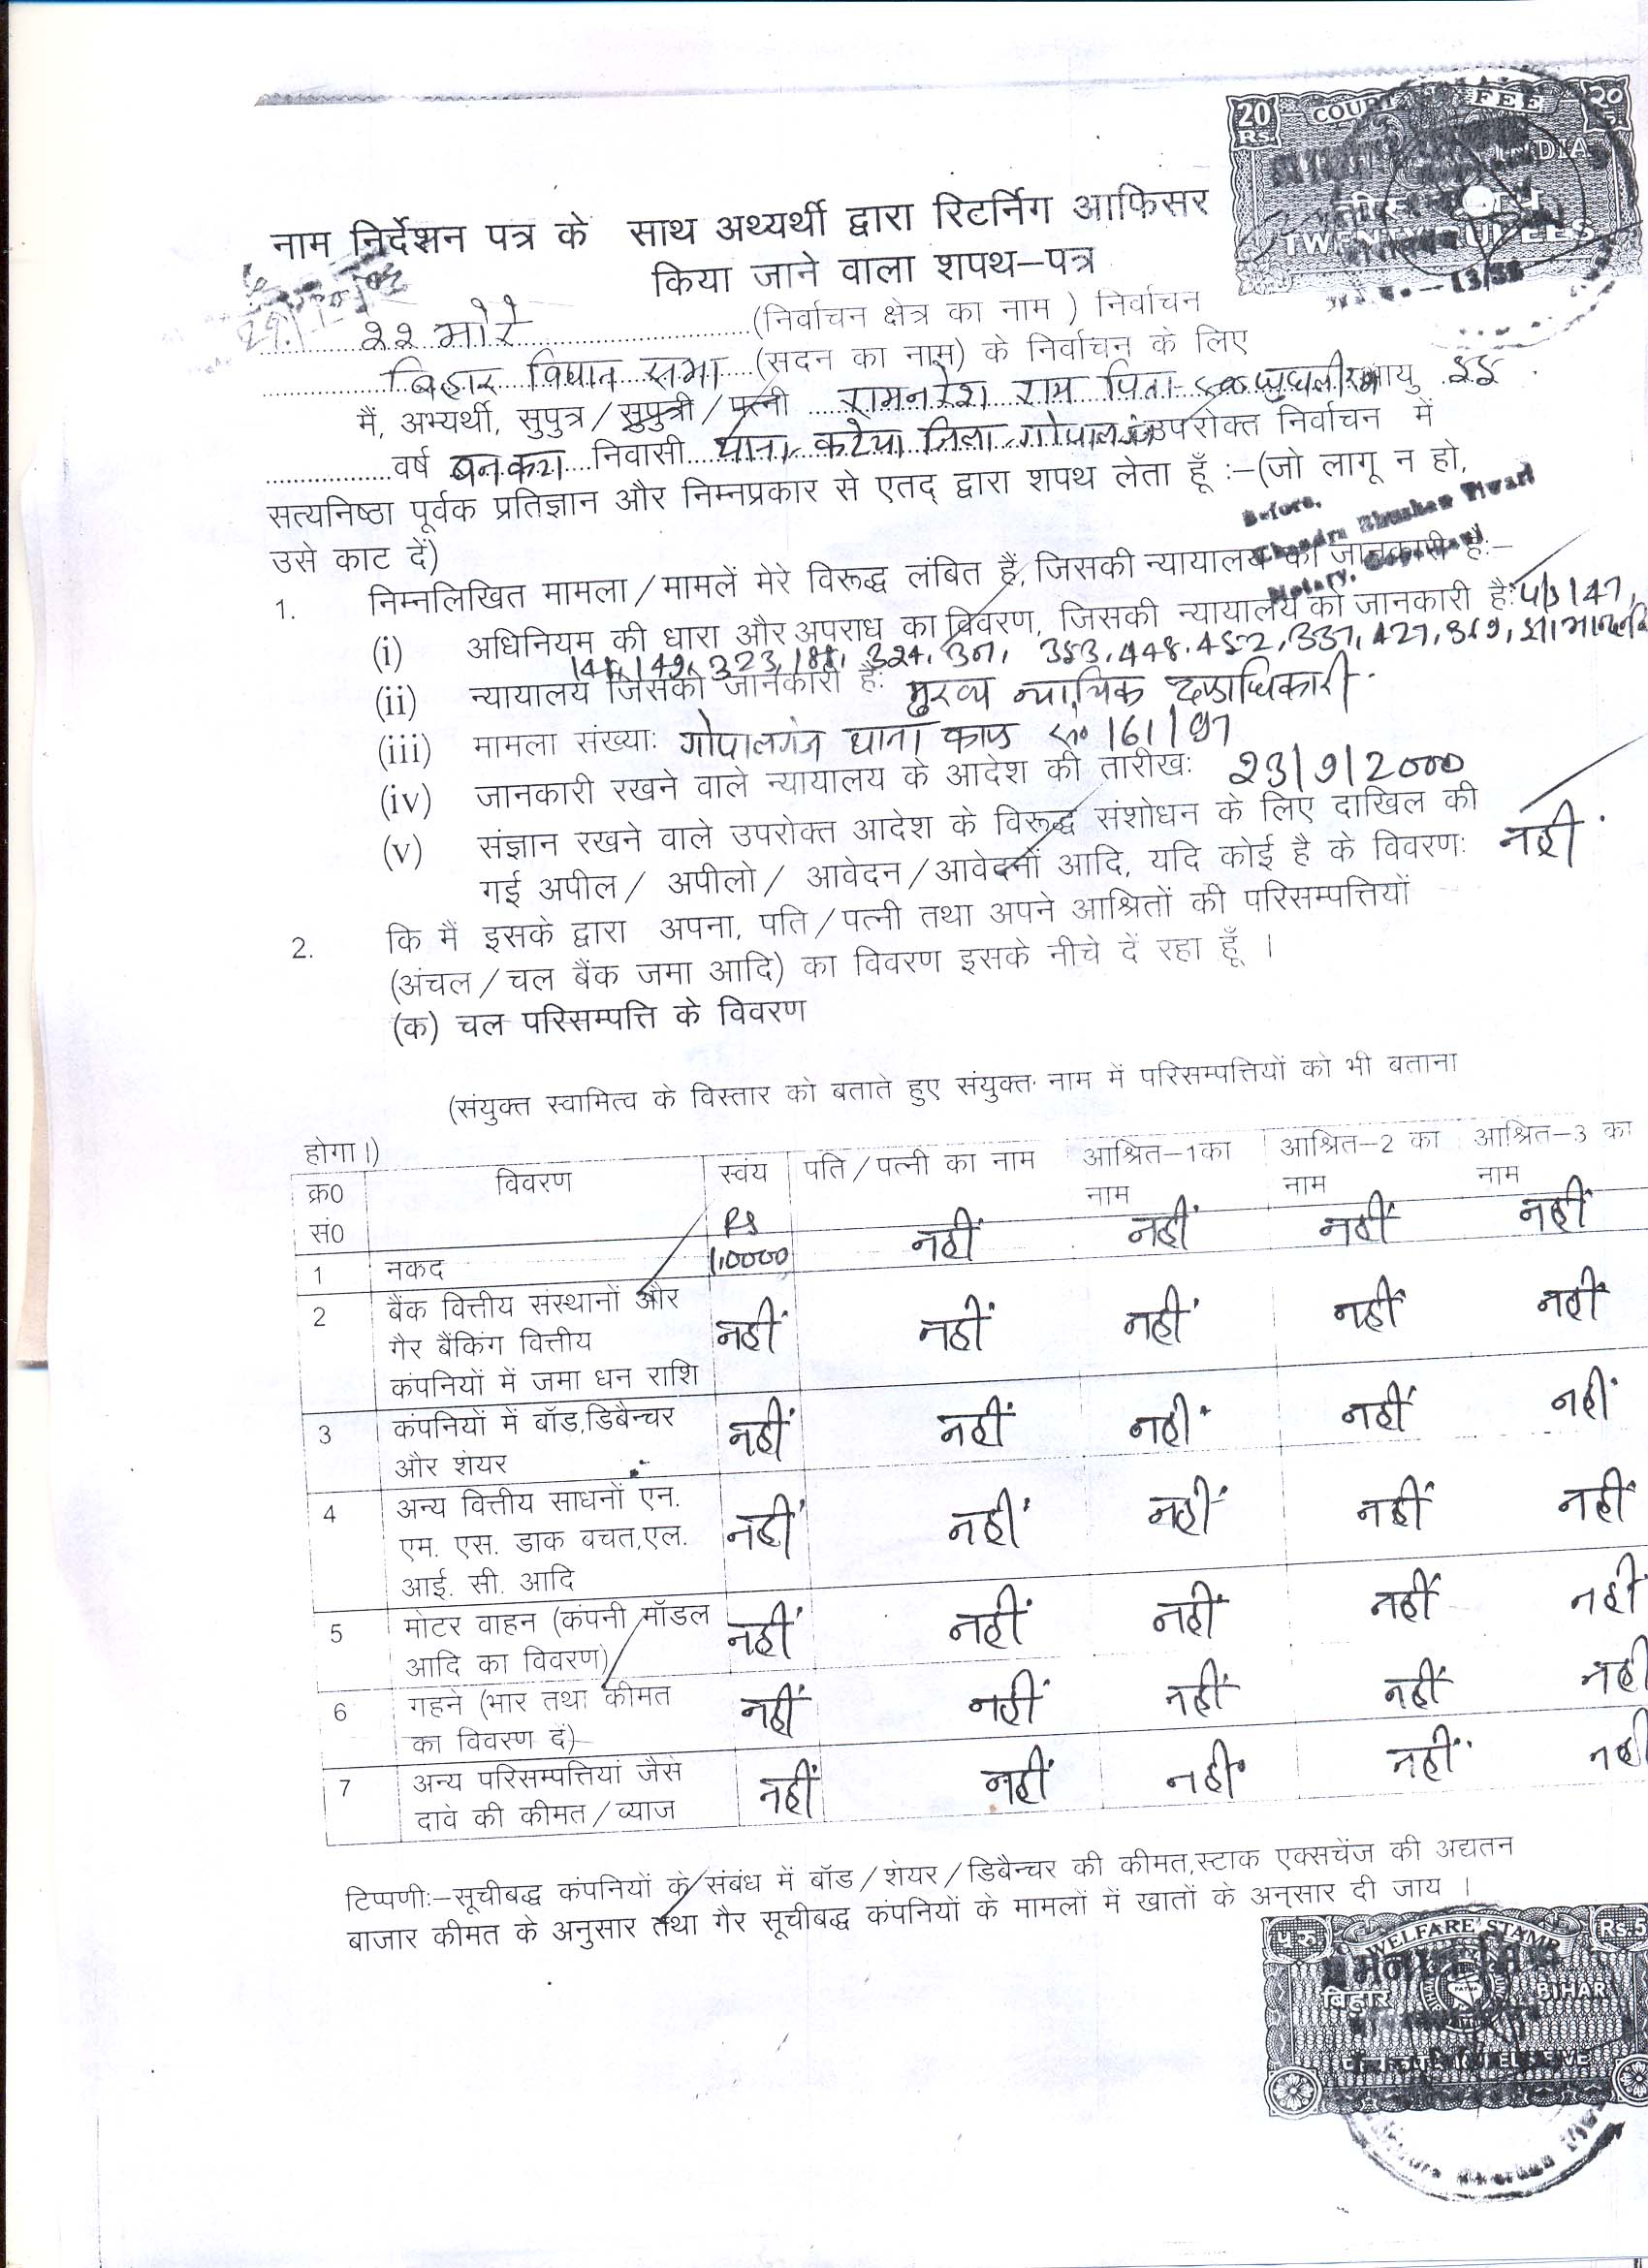 20 Rs. COURT FEE २० रु.
INDIA
TWENTY RUPEES
नाम निर्देशन पत्र के साथ अभ्यर्थी द्वारा रिटर्निग आफिसर
किया जाने वाला शपथ–पत्र
२२ भोरे (निर्वाचन क्षेत्र का नाम ) निर्वाचन
बिहार विधान सभा (सदन का नाम) के निर्वाचन के लिए
मैं, अभ्यर्थी, सुपुत्र/सुपुत्री/पत्नी रामनरेश राम पिता आयु
वर्ष निवासी थाना कटेया जिला गोपालगंज उपरोक्त निर्वाचन में
सत्यनिष्ठा पूर्वक प्रतिज्ञान और निम्नप्रकार से एतद् द्वारा शपथ लेता हूँ :–(जो लागू न हो,
उसे काट दें)
Before,
Chandra Bhushan Tiwari
Notary, Gopalganj
1. निम्नलिखित मामला/मामलें मेरे विरूद्ध लंबित हैं, जिसकी न्यायालय को जानकारी हैः–
(i) अधिनियम की धारा और अपराध का विवरण, जिसकी न्यायालय को जानकारी हैः 147,
149, 323, 188, 324, 307, 353, 448, 452, 337, 427,
(ii) न्यायालय जिसको जानकारी हैः मुख्य न्यायिक दण्डाधिकारी
(iii) मामला संख्याः गोपालगंज थाना काण्ड सं० 161/97
(iv) जानकारी रखने वाले न्यायालय के आदेश की तारीखः 23/9/2000
(v) संज्ञान रखने वाले उपरोक्त आदेश के विरूद्ध संशोधन के लिए दाखिल की
गई अपील/ अपीलो/ आवेदन/आवेदनों आदि, यदि कोई है के विवरणः नहीं
2. कि मैं इसके द्वारा अपना, पति/पत्नी तथा अपने आश्रितों की परिसम्पत्तियों
(अंचल/चल बैंक जमा आदि) का विवरण इसके नीचे दें रहा हूँ ।
(क) चल परिसम्पत्ति के विवरण
(संयुक्त स्वामित्व के विस्तार को बताते हुए संयुक्त नाम में परिसम्पत्तियों को भी बताना
होगा।)
क्र0 सं0 विवरण स्वंय पति/पत्नी का नाम आश्रित–1का नाम आश्रित–2 का नाम आश्रित–3 का नाम
1 नकद Rs 10000 नहीं नहीं नहीं नहीं
2 बैंक वित्तीय संस्थानों और
गैर बैंकिंग वित्तीय नहीं नहीं नहीं नहीं नहीं
कंपनियों में जमा धन राशि
3 कंपनियों में बॉड,डिबैन्चर नहीं नहीं नहीं नहीं नहीं
और शेयर
4 अन्य वित्तीय साधनों एन.
एम. एस. डाक बचत,एल. नहीं नहीं नहीं नहीं नहीं
आई. सी. आदि
5 मोटर वाहन (कंपनी मॉडल नहीं नहीं नहीं नहीं नहीं
आदि का विवरण)
6 गहने (भार तथा कीमत नहीं नहीं नहीं नहीं नहीं
का विवरण दें)
7 अन्य परिसम्पत्तियां जैसे नहीं नहीं नहीं नहीं नहीं
दावे की कीमत/व्याज
टिप्पणीः–सूचीबद्ध कंपनियों के संबंध में बॉड/शेयर/डिबैन्चर की कीमत,स्टाक एक्सचेंज की अद्यतन
बाजार कीमत के अनुसार तथा गैर सूचीबद्ध कंपनियों के मामलों में खातों के अनुसार दी जाय ।
५ रु WELFARE STAMP Rs.5
बिहार BIHAR